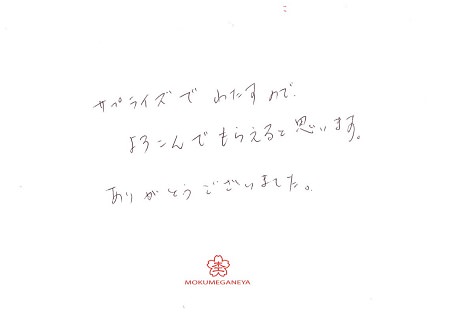 サプライズでわたすので、
よろこんでもらえると思います。
ありがとうございました。
MOKUMEGANEYA